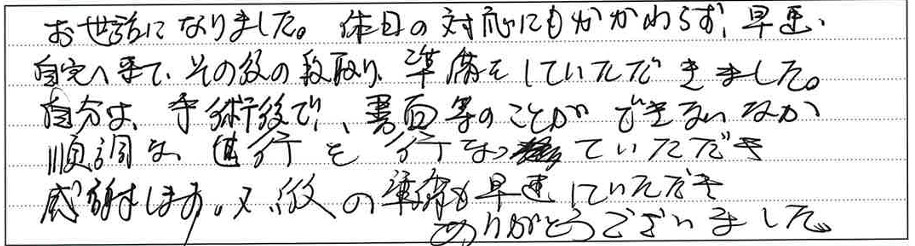 お世話になりました。休日の対応にもかかわらず、早速、
自宅へ来て、その後の段取り、準備をしていただきました。
自分は、手術後で、書面等のことができないなか
順調な進行を行なっていただき
感謝します。又、後の準備も早速していただき
ありがとうございました。